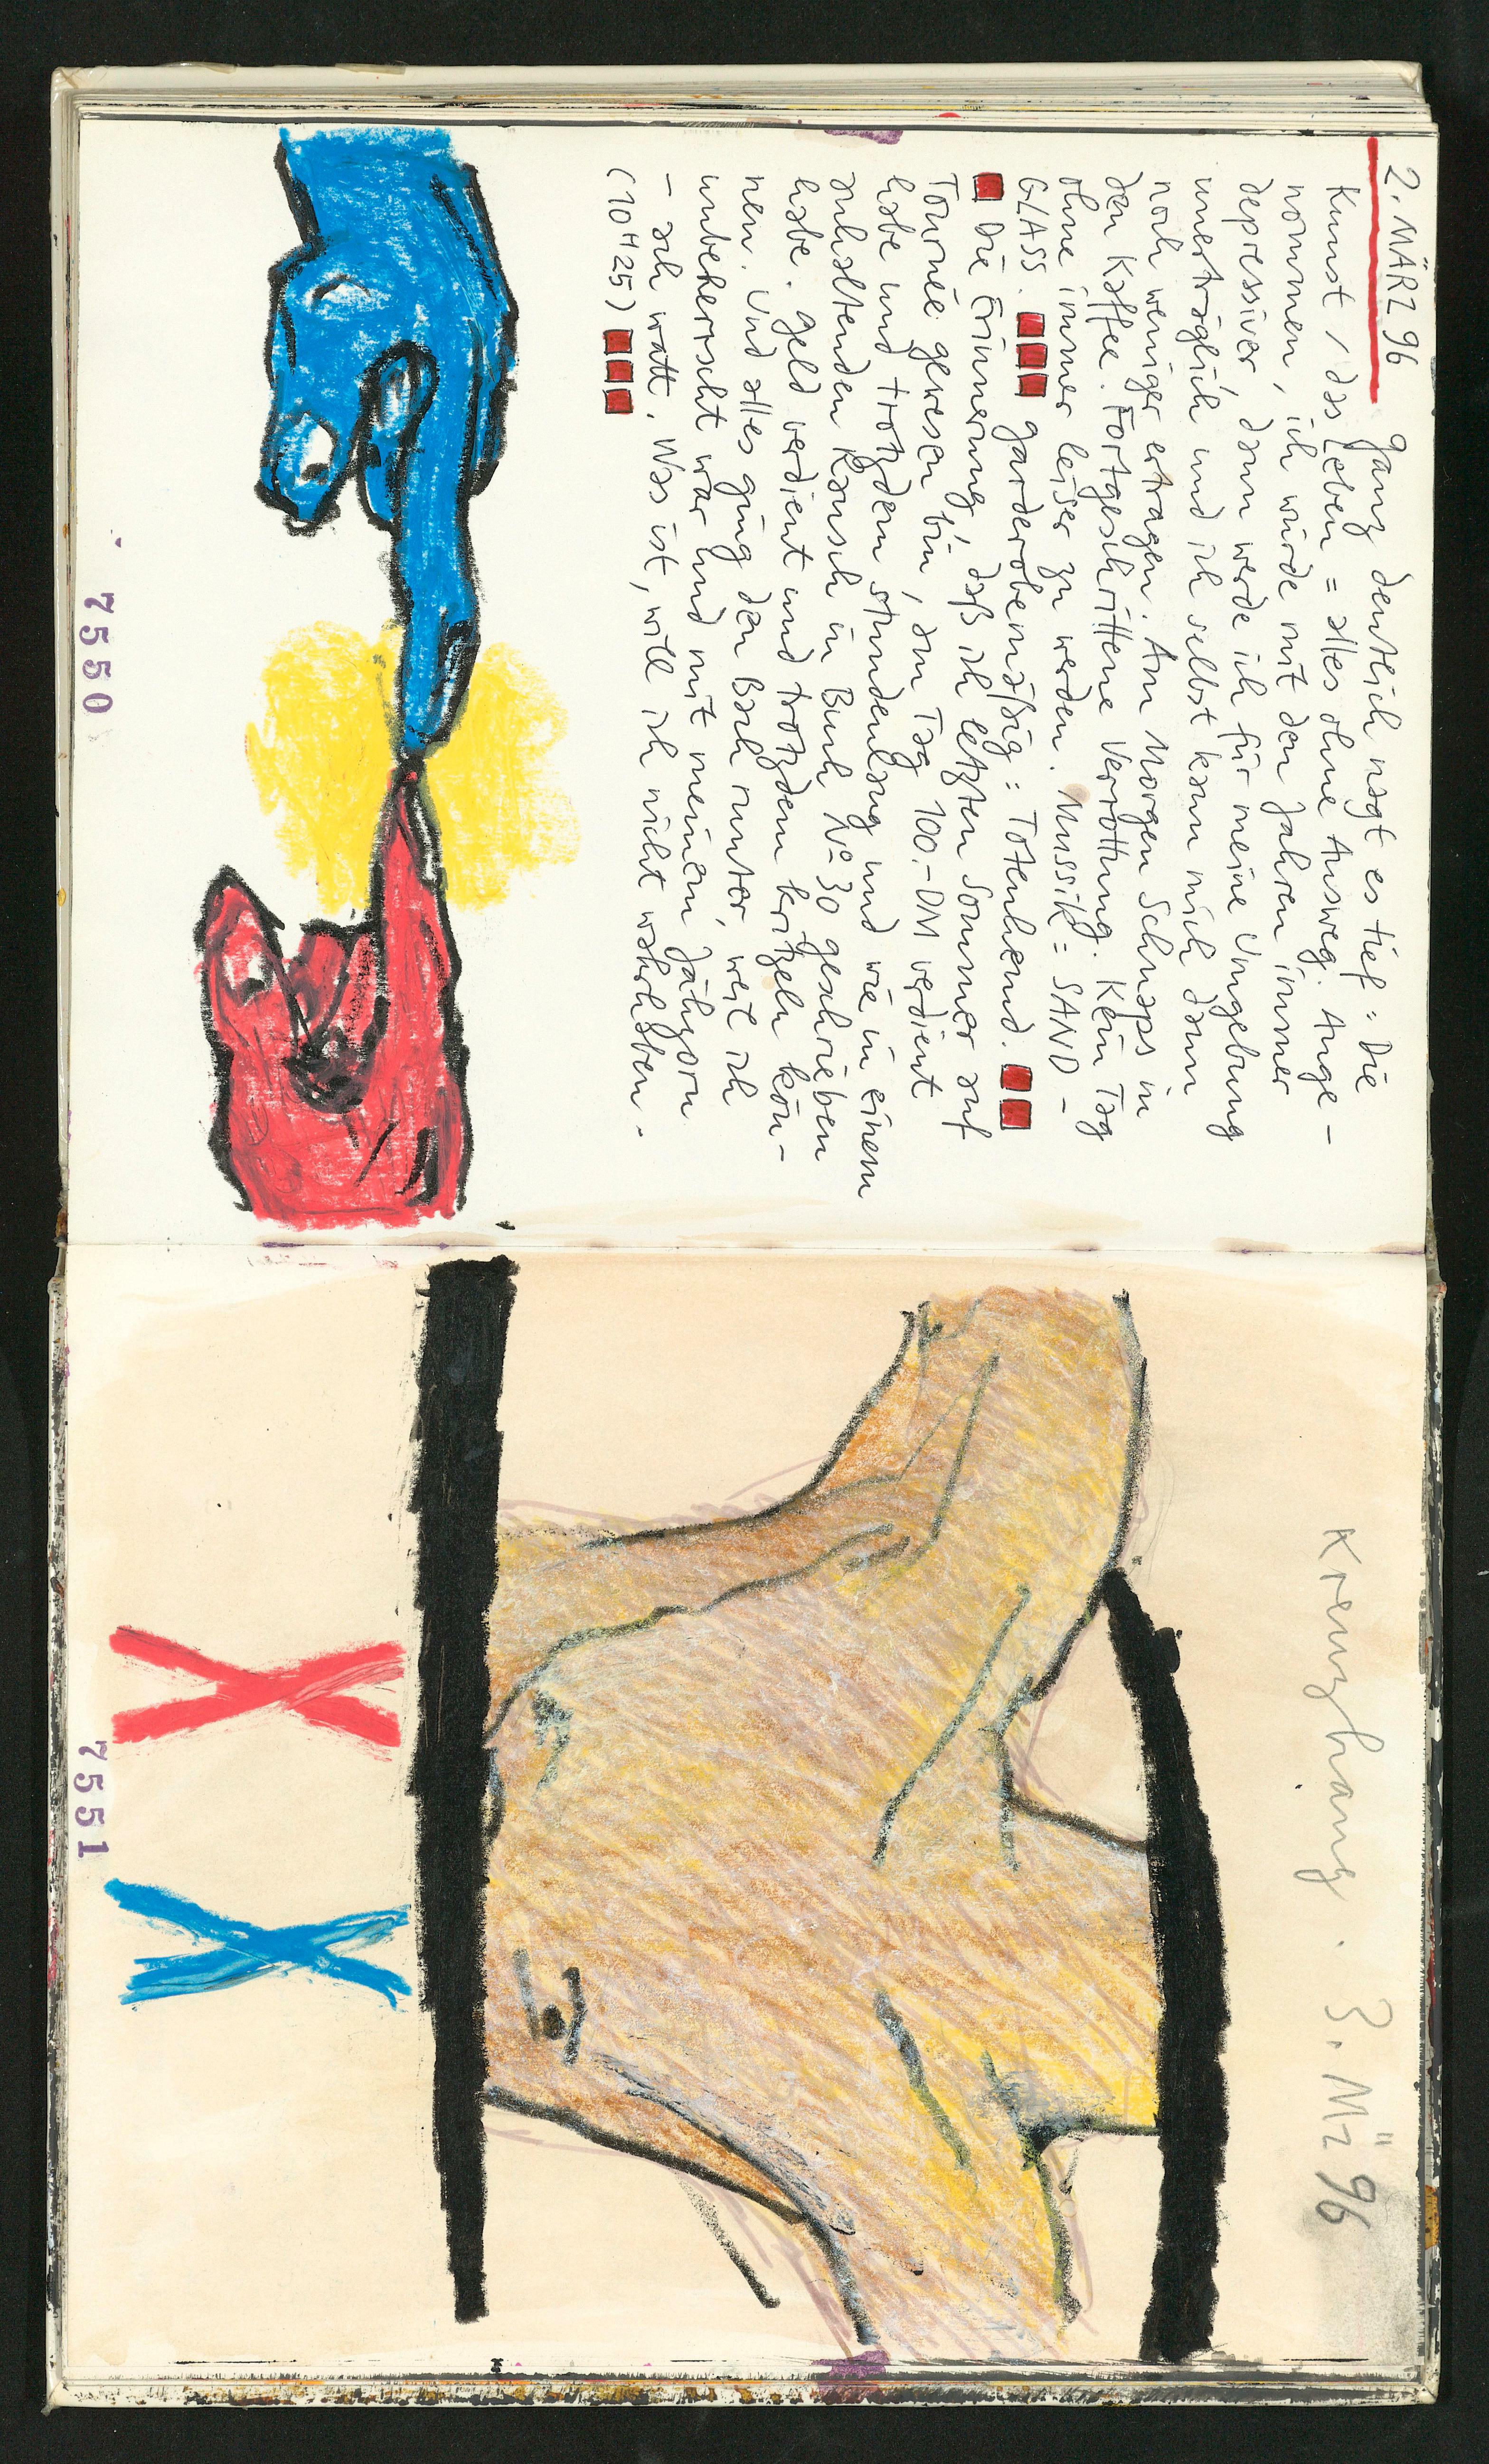 2. MÄRZ 96
ganz deutlich nagt es tief: Die
Kunst / das Leben = alles ohne Ausweg. Ange-
nommen, ich würde mit den Jahren immer
depressiver, dann werde ich für meine Umgebung
unerträglich und ich selbst kann mich dann
noch weniger ertragen. Am Morgen Schnaps in
den Kaffee. Fortgeschrittene Verrottung. Kein Tag
ohne immer leiser zu werden. Mussik = SAND-
GLASS. garderobenmäßig: Totenhemd.
Die Erinnerung, daß ich letzten Sommer auf
Tournée gewesen bin, am Tag 100.-DM verdient
habe und trotzdem stundenlang und wie in einem
anhaltenden Rausch in Buch № 30 geschrieben
habe. geld verdient und trotzdem kritzeln kön-
nen. Und alles ging den Bach runter, weil ich
unbeherrscht war und mit meinem Jähzorn
- ach watt. Was ist, will ich nicht wahrhaben.
(10H25)
7550
Kreuzhang. 3. Mz 96
7551